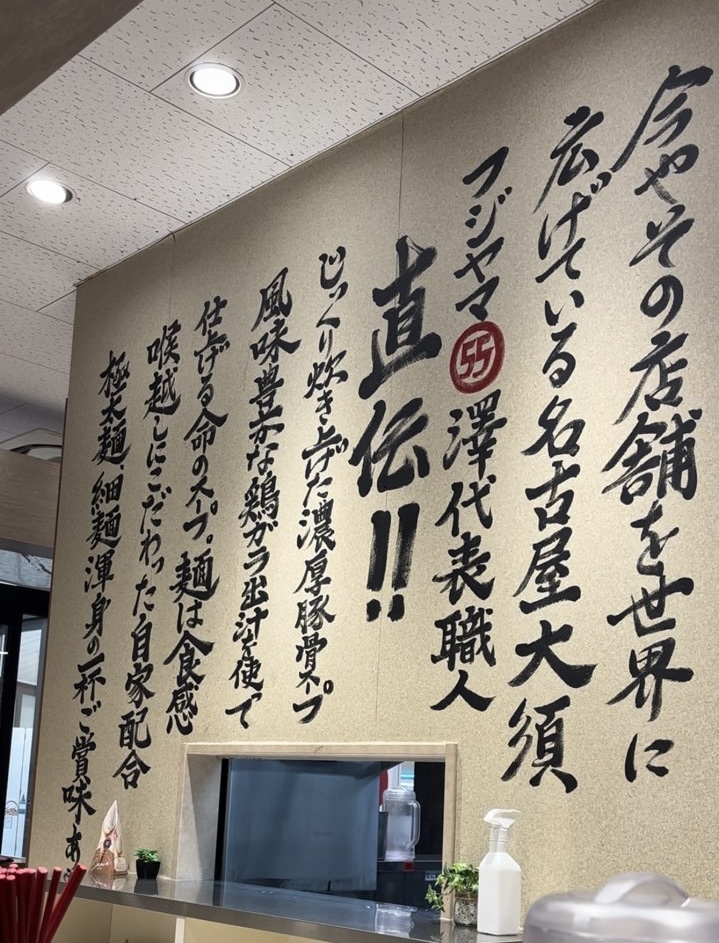 今やその店舗を世界に
広げている名古屋大須
フジヤマ55澤代表職人
直伝!!
じっくり炊き上げた濃厚豚骨スープ
風味豊かな鶏ガラ出汁を使って
仕上げる命のスープ。麺は食感
喉越しにこだわった自家配合
極太麺、細麺渾身の一杯ご賞味あ